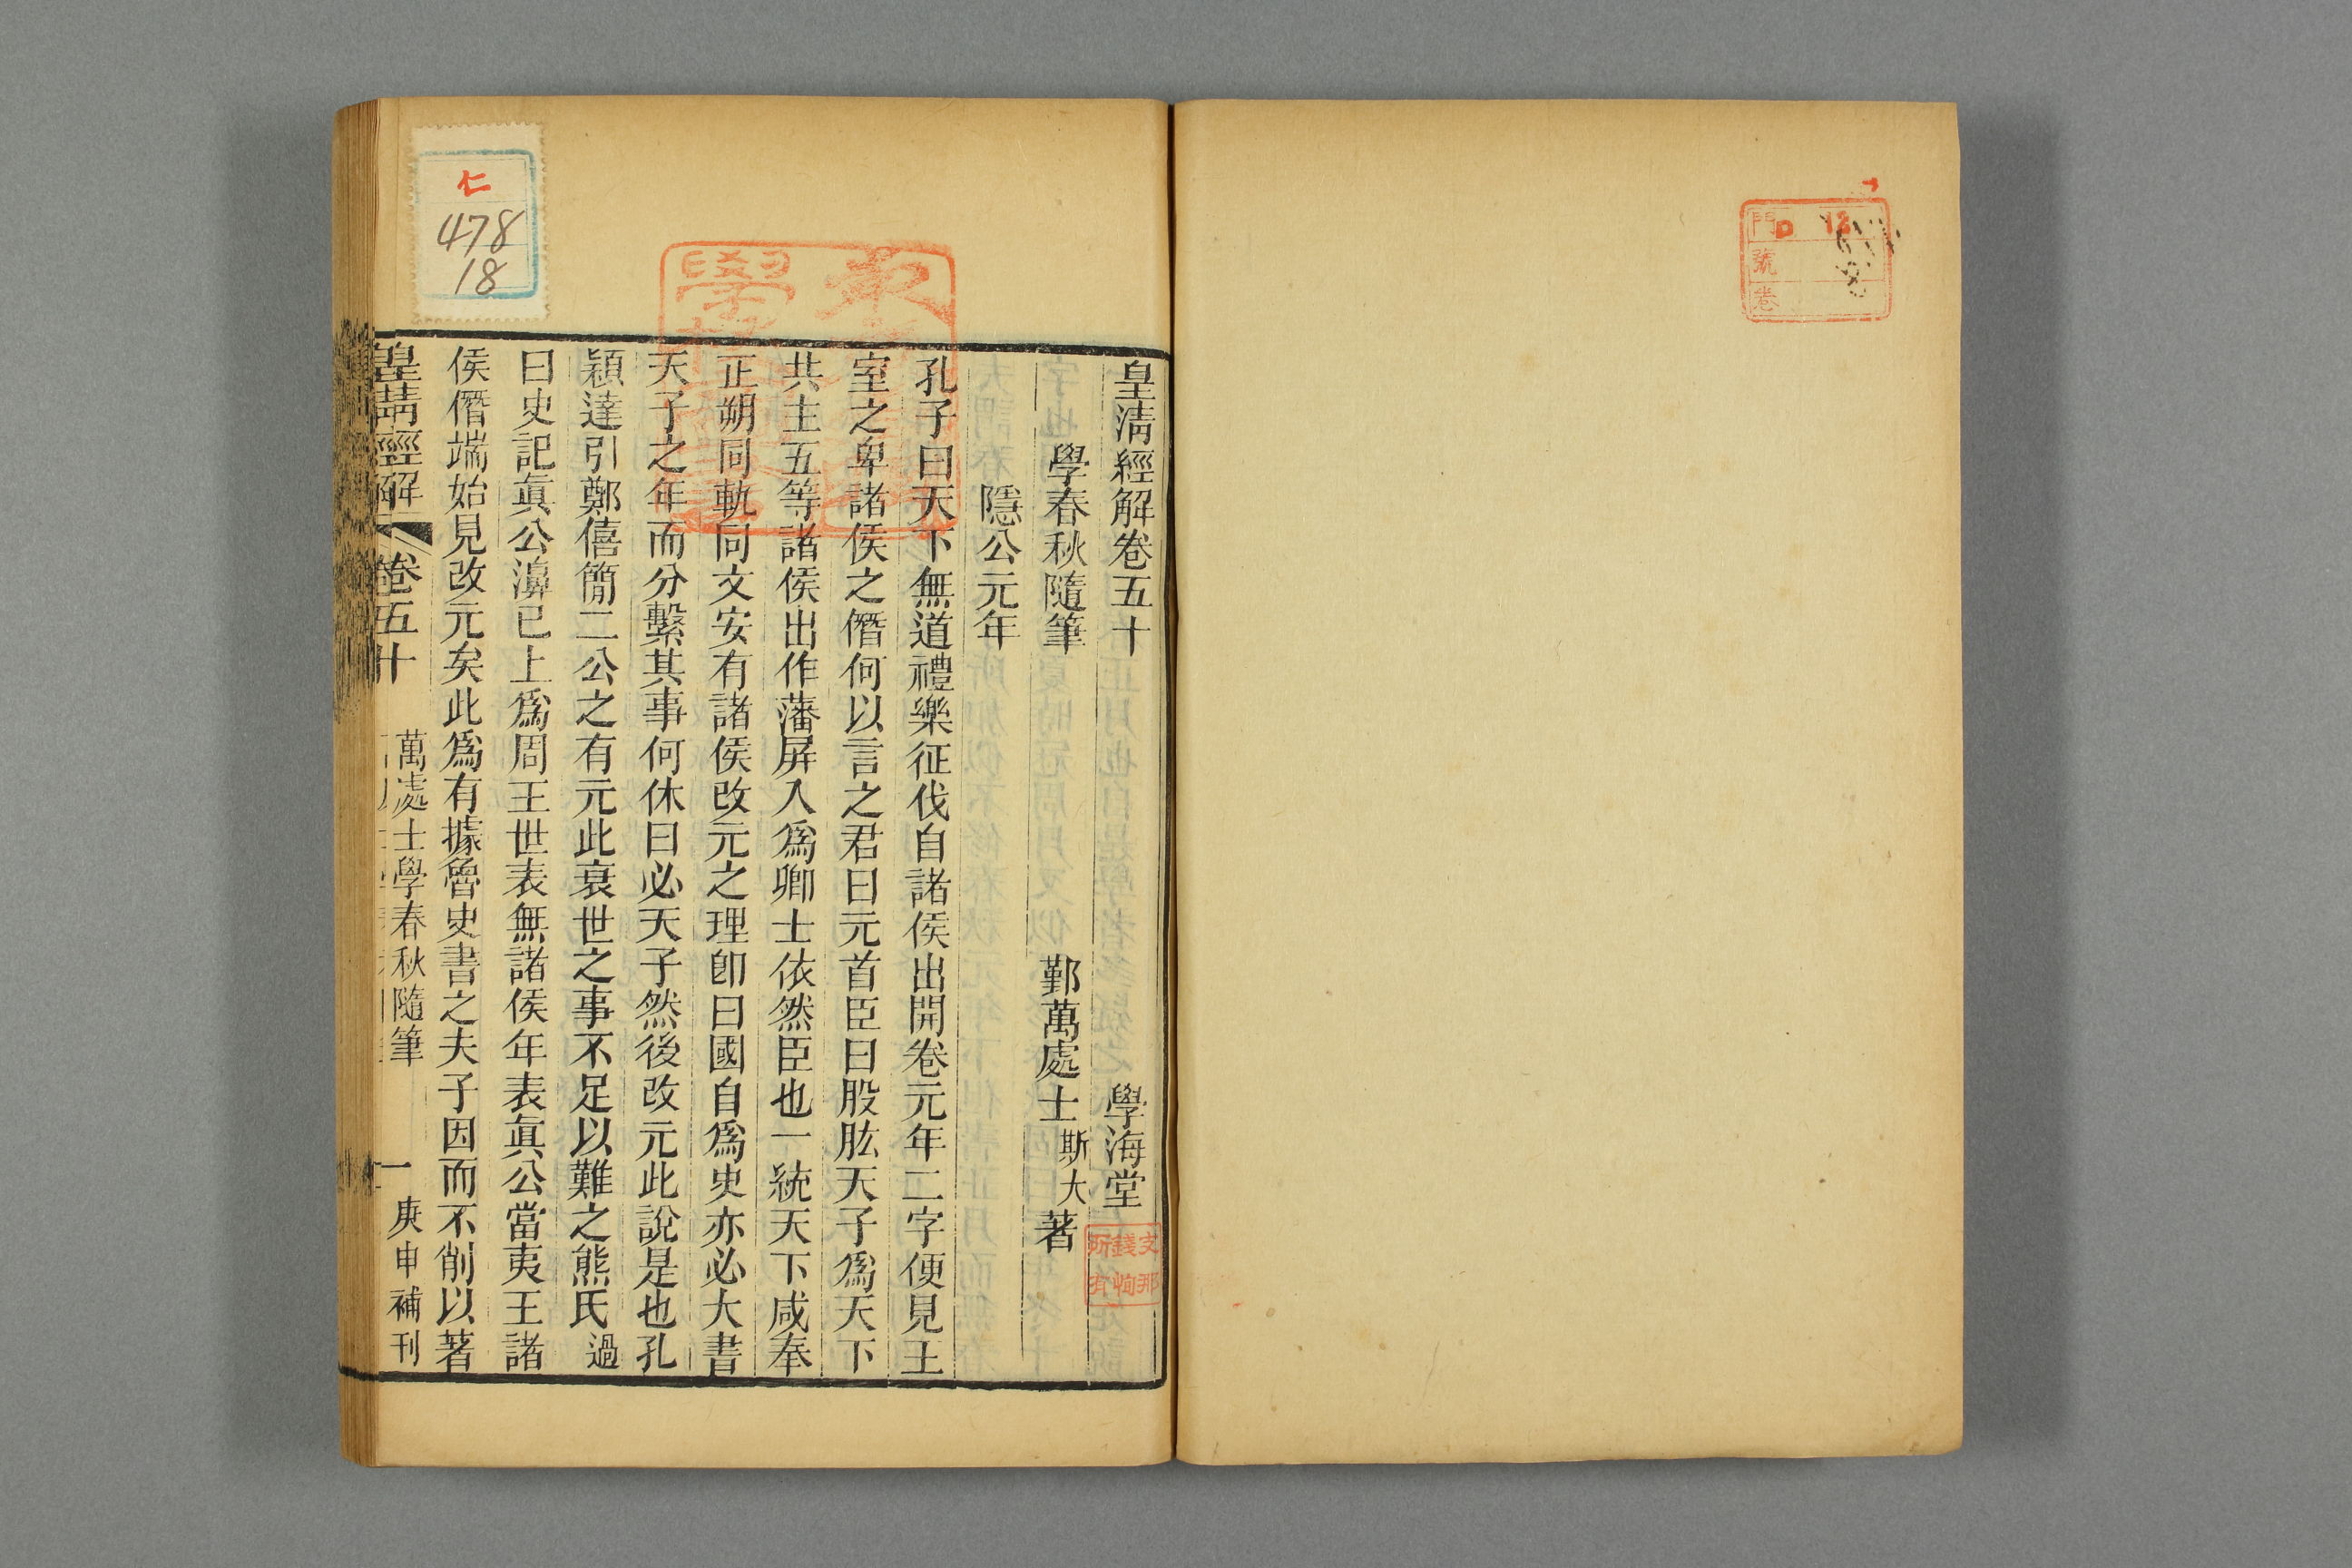 皇清經解卷五十　學海堂
學春秋隨筆　鄞萬處士斯大著
隱公元年
孔子曰天下無道禮樂征伐自諸侯出開卷元年二字便見王
室之卑諸侯之僭何以言之君曰元首臣曰股肱天子爲天下
共主五等諸侯出作藩屏入爲卿士依然臣也一統天下咸奉
正朔同軌同文安有諸侯改元之理卽曰國自爲史亦必大書
天子之年而分繫其事何休曰必天子然後改元此說是也孔
穎達引鄭僖簡二公之有元此衰世之事不足以難之熊氏過
曰史記眞公濞已上爲周王世表無諸侯年表眞公當夷王諸
侯僭端始見改元矣此爲有據魯史書之夫子因而不削以著
皇清經解　卷五十　萬處士學春秋隨筆　一　庚申補刊
仁
478
18
支那
錢恂
所有
門 D 12
號
卷